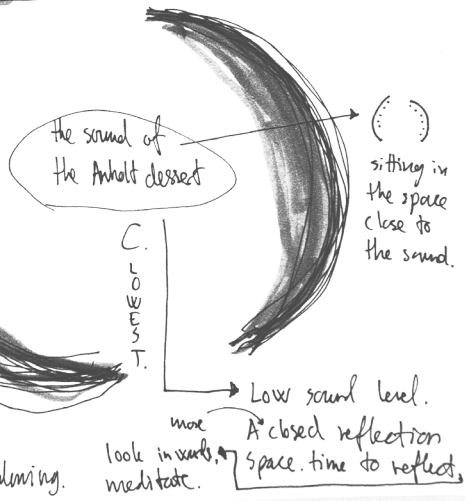 the sound of
the Anholt dessert
sitting in
the space
close to
the sound.
C.
LOWEST.
Low sound level.
more
A closed reflection
space. time to reflect,
look inwards,
meditate.